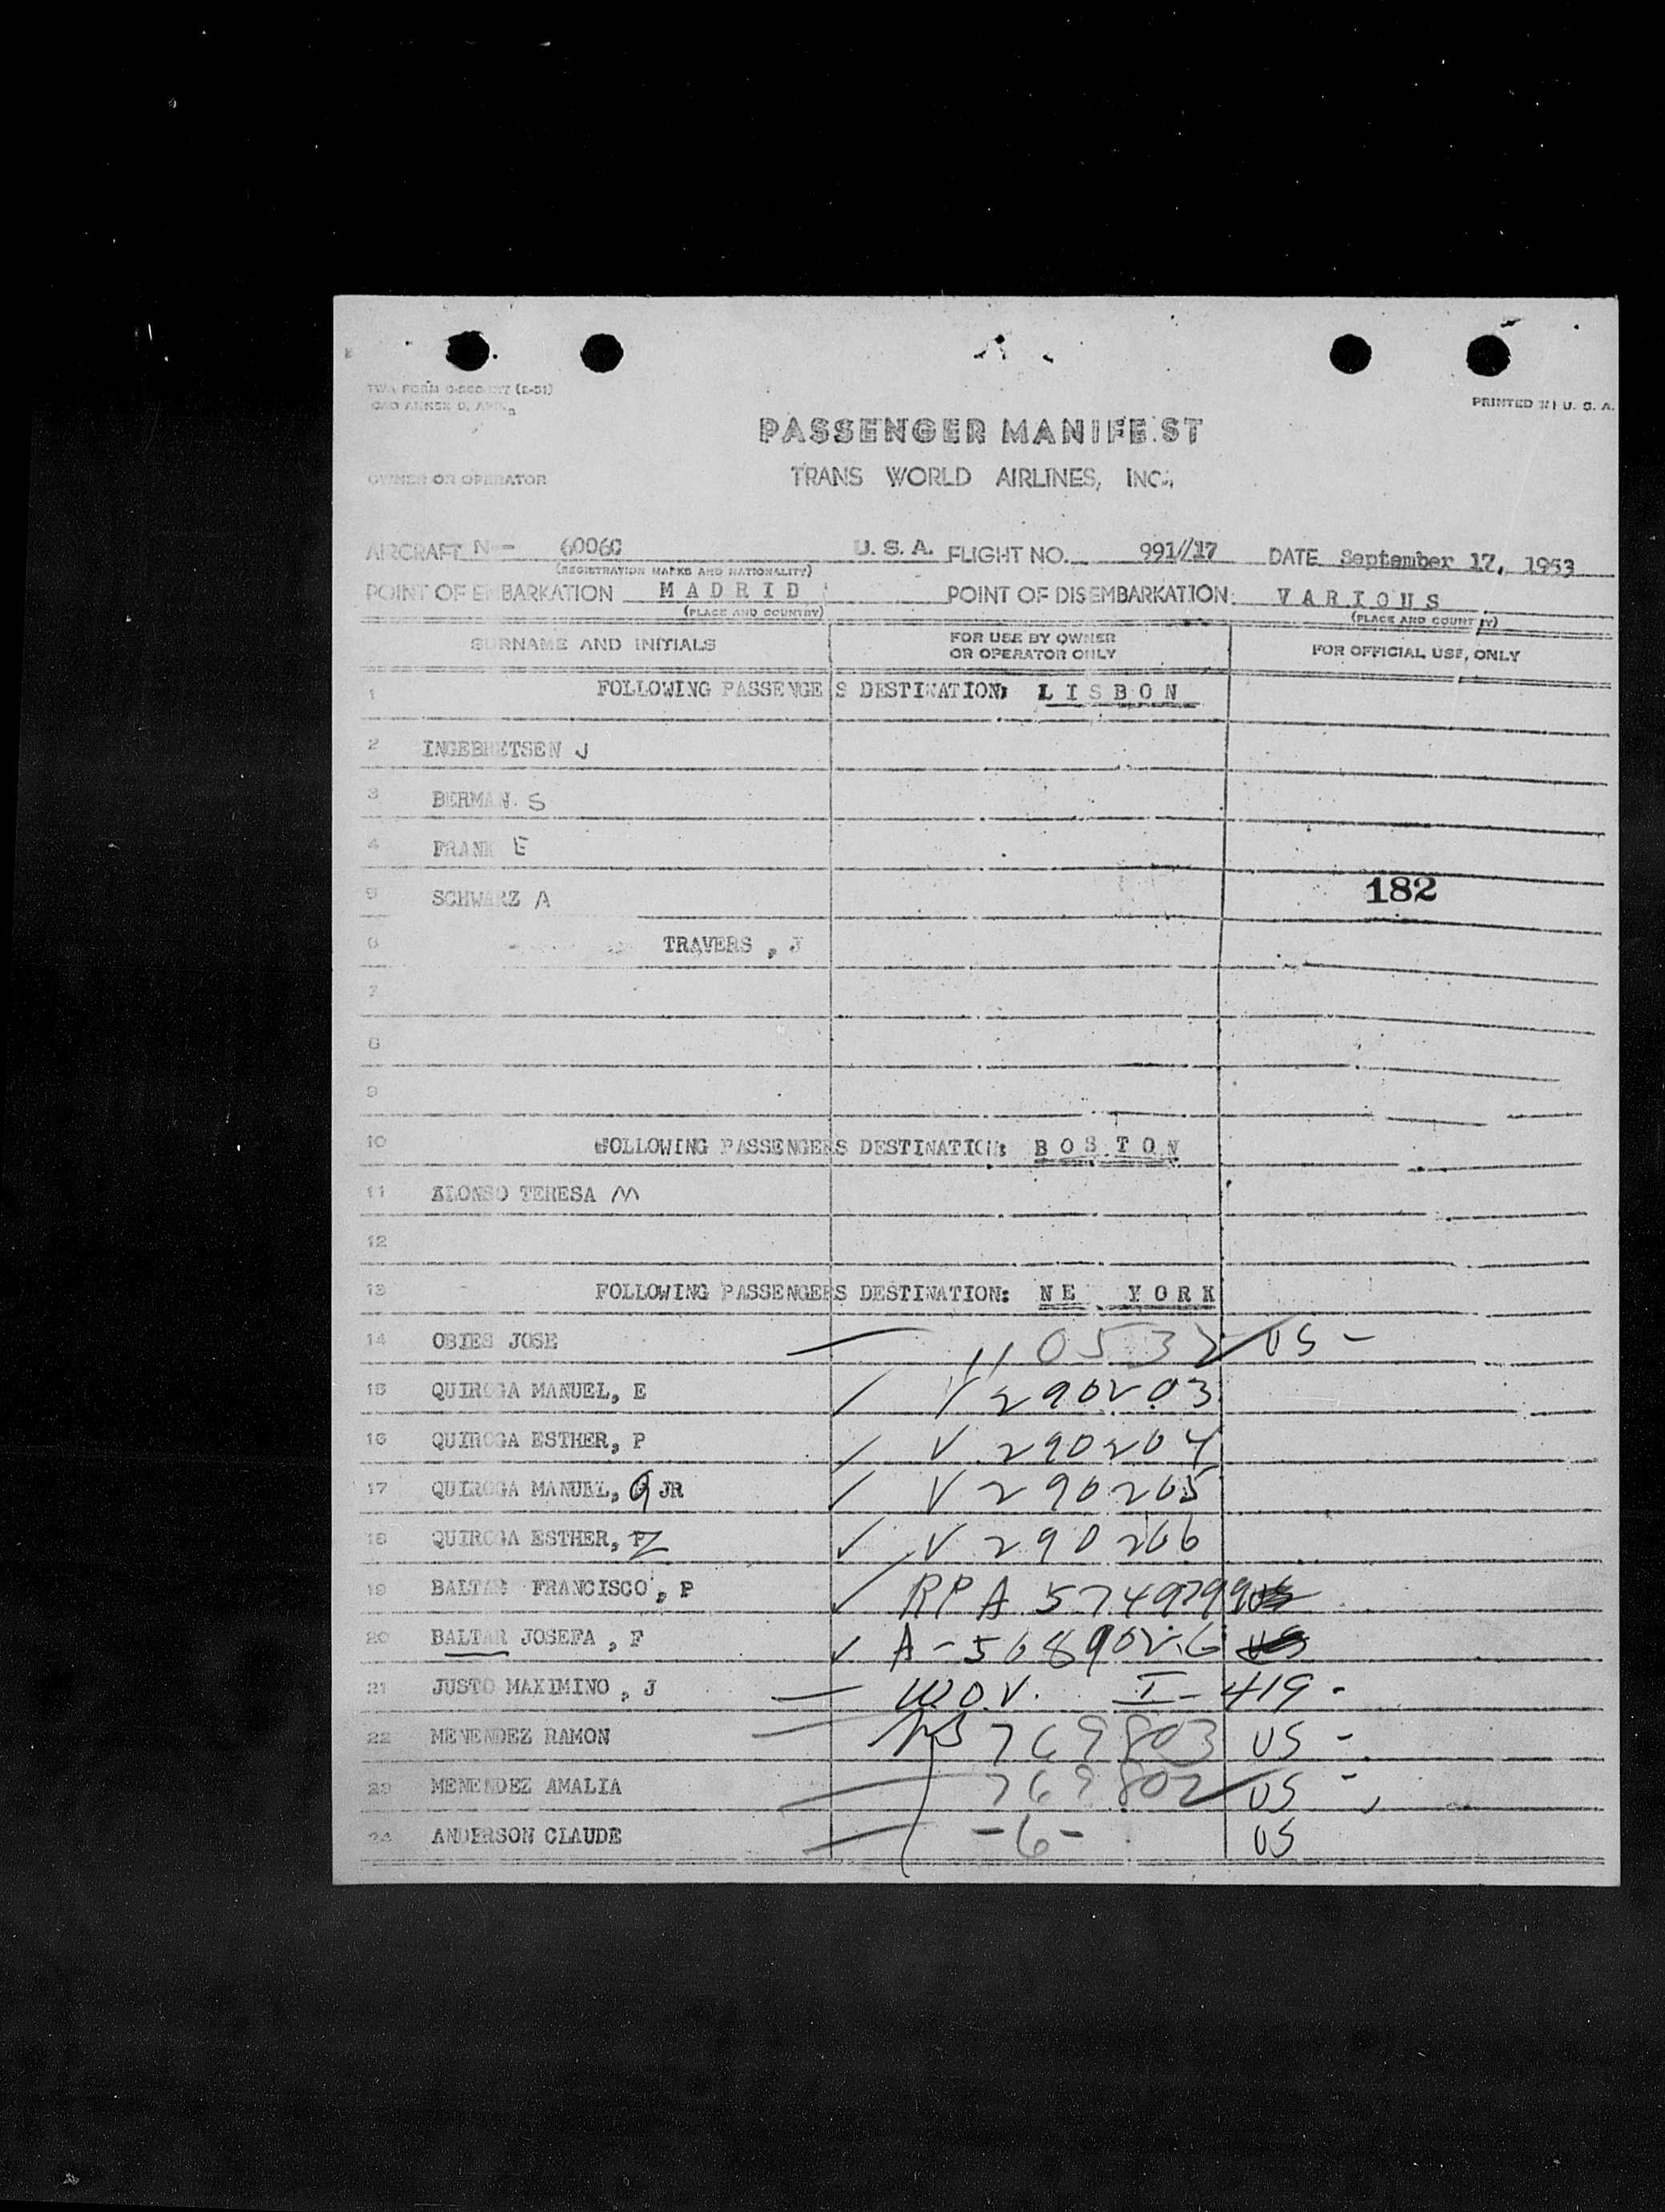 PRINTED IN U. S. A.
PASSENGER MANIFEST
OWNER OR OPERATOR TRANS WORLD AIRLINES, INC.,
AIRCRAFT N - 60060 U. S. A. FLIGHT NO. 991//17 DATE September 17, 1953
(REGISTRATION MARKS AND NATIONALITY)
POINT OF EMBARKATION M A D R I D POINT OF DISEMBARKATION: V A R I O U S
(PLACE AND COUNTRY) (PLACE AND COUNTRY)
SURNAME AND INITIALS FOR USE BY OWNER OR OPERATOR ONLY FOR OFFICIAL USE ONLY
1 FOLLOWING PASSENGERS DESTINATION: L I S B O N
2 INGEBRETSEN J
3 BERMAN S
4 FRANK E
5 SCHWARZ A 182
6 TRAVERS , J
7
8
9
10 FOLLOWING PASSENGERS DESTINATION: B O S T O N
11 ALONSO TERESA M
12
13 FOLLOWING PASSENGERS DESTINATION: NE YORK
14 OBIES JOSE 110532 US -
15 QUIROGA MANUEL, E V 290203
16 QUIROGA ESTHER, P V 290204
17 QUIROGA MANUEL, Q JR V 290205
18 QUIROGA ESTHER, Z V 290206
19 BALTAR FRANCISCO, P RP A 5749799
20 BALTAR JOSEFA , F A-5689026 US
21 JUSTO MAXIMINO , J W.O.V. I - 419 -
22 MENENDEZ RAMON 769803 US -
23 MENENDEZ AMALIA 769802 US -
24 ANDERSON CLAUDE -6- US